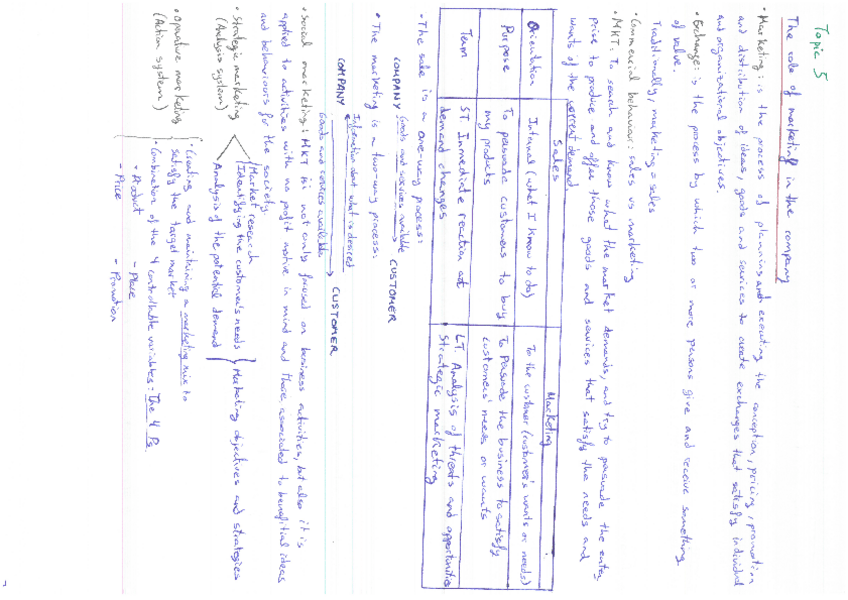 Topic 5
The role of marketing in the company
• Marketing: is the process of planning and executing the conception, pricing, promotion
and distribution of ideas, goods and services to create exchanges that satisfy individual
and organizational objectives.
• Exchange: is the process by which two or more persons give and receive something
of value.
Traditionally, marketing = sales
• Commercial behaviour: sales vs marketing
• MKT: To search and know what the market demands, and try to persuade the enter
prise to produce and offer those goods and services that satisfy the needs and
wants of the current demand
Sales Marketing
Orientation Internal (what I know to do) To the customer (customer's wants or needs)
Purpose To persuade customers to buy my products To Persuade the business to satisfy customers' needs or wants
Term ST. Inmediate reaction at demand changes LT. Analysis of threats and opportunities Strategic marketing
• The sale is a one-way process:
COMPANY Goods and services available CUSTOMER
• The marketing is a two-way process:
Goods and services available
COMPANY CUSTOMER
Information about what is desired
• Social marketing: MKT is not only focused on business activities, but also it is
applied to activities with no profit motive in mind and those associated to benefitial ideas
and behaviours for the society.
• Strategic marketing
(Analysis system)
Market research
Identifying the customer's needs
Analysis of the potential demand
Marketing objectives and strategies
• Operative marketing
(Action system)
• Creating and maintaining a marketing mix to
satisfy the target market
• Combination of the 4 controllable variables: The 4 Ps.
- Product - Place
- Price - Promotion